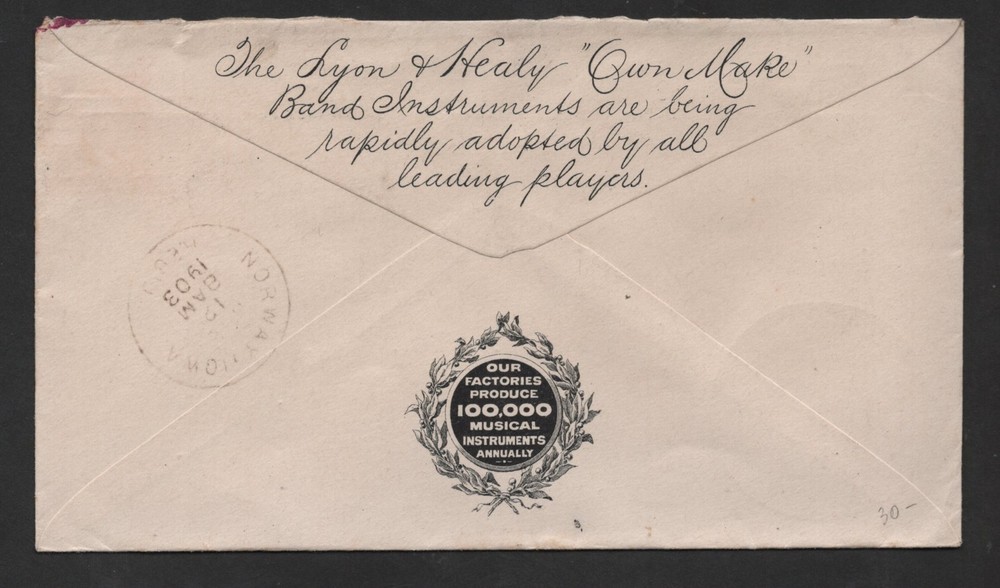 The Lyon & Healy "Own Make"
Band Instruments are being
rapidly adopted by all
leading players.
NORWAY IOWA
1903
AM
OUR
FACTORIES
PRODUCE
100,000
MUSICAL
INSTRUMENTS
ANNUALLY
30-